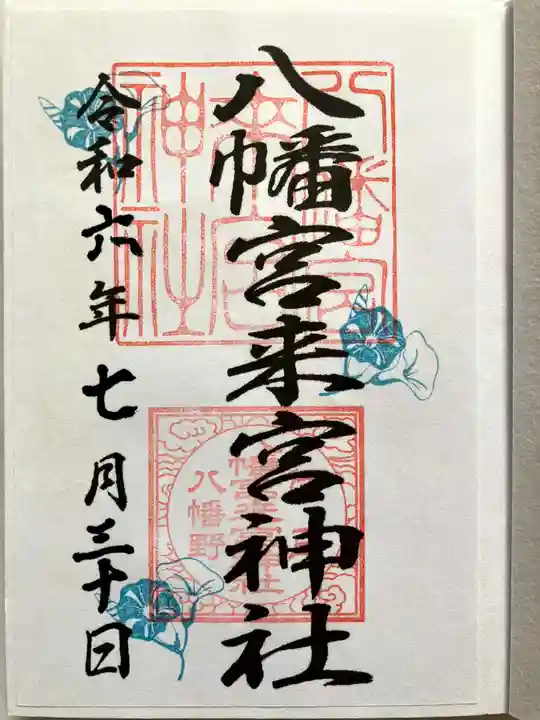 八幡宮来宮神社
令和六年七月三十日
八幡野